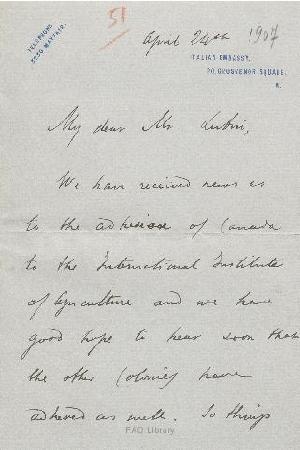 51
TELEPHONE
5250 MAYFAIR.
April 24th 1907
ITALIAN EMBASSY,
20, GROSVENOR SQUARE,
W.
My dear Mr Lubin,
We have received news as
to the adhesion of Canada
to the International Institute
of Agriculture and we have
good hope to hear soon that
the other Colonies have
adhered as well. So things
FAO Library